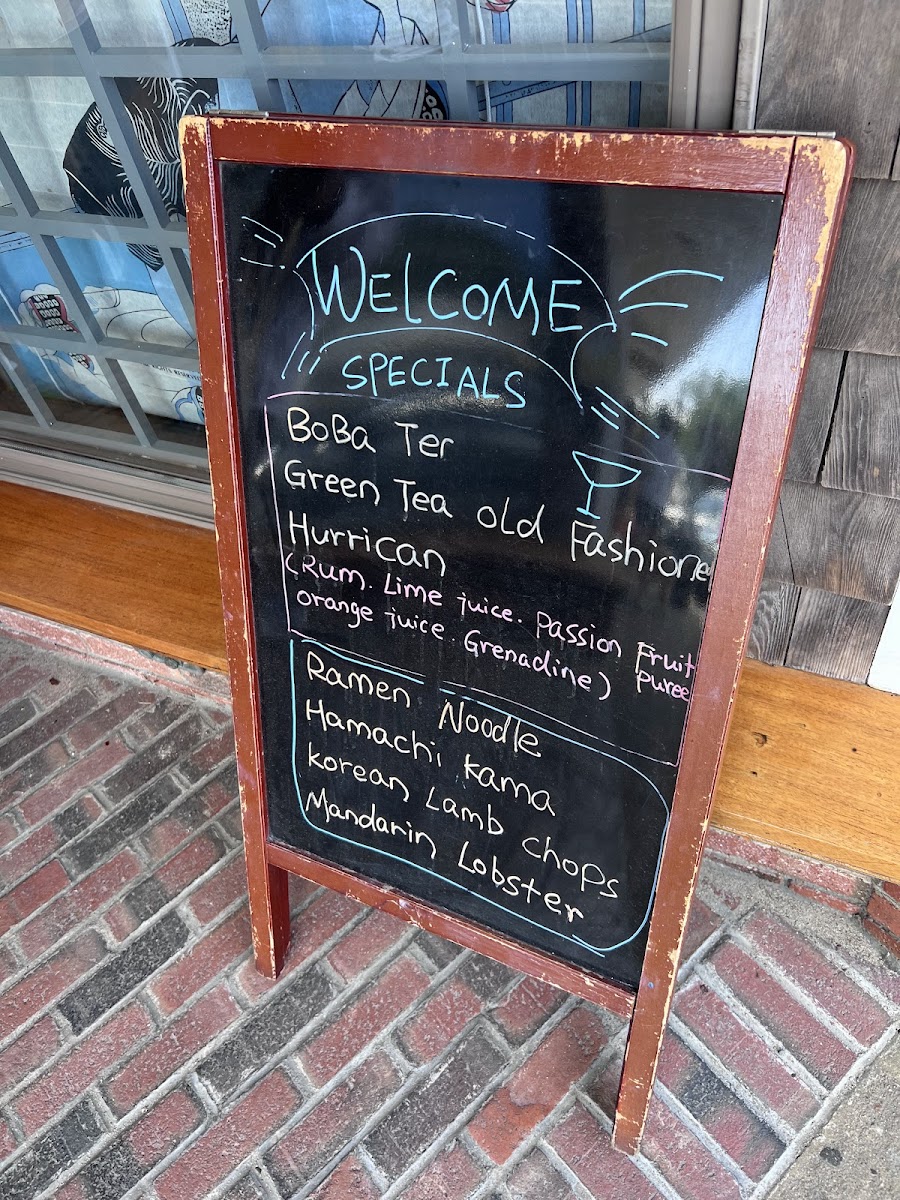 WELCOME
SPECIALS
BoBa Ter
Green Tea old Fashione
Hurrican
(Rum. Lime juice. Passion Fruit
orange juice. Grenadine) Puree
Ramen Noodle
Hamachi Kama
korean Lamb chops
Mandarin Lobster